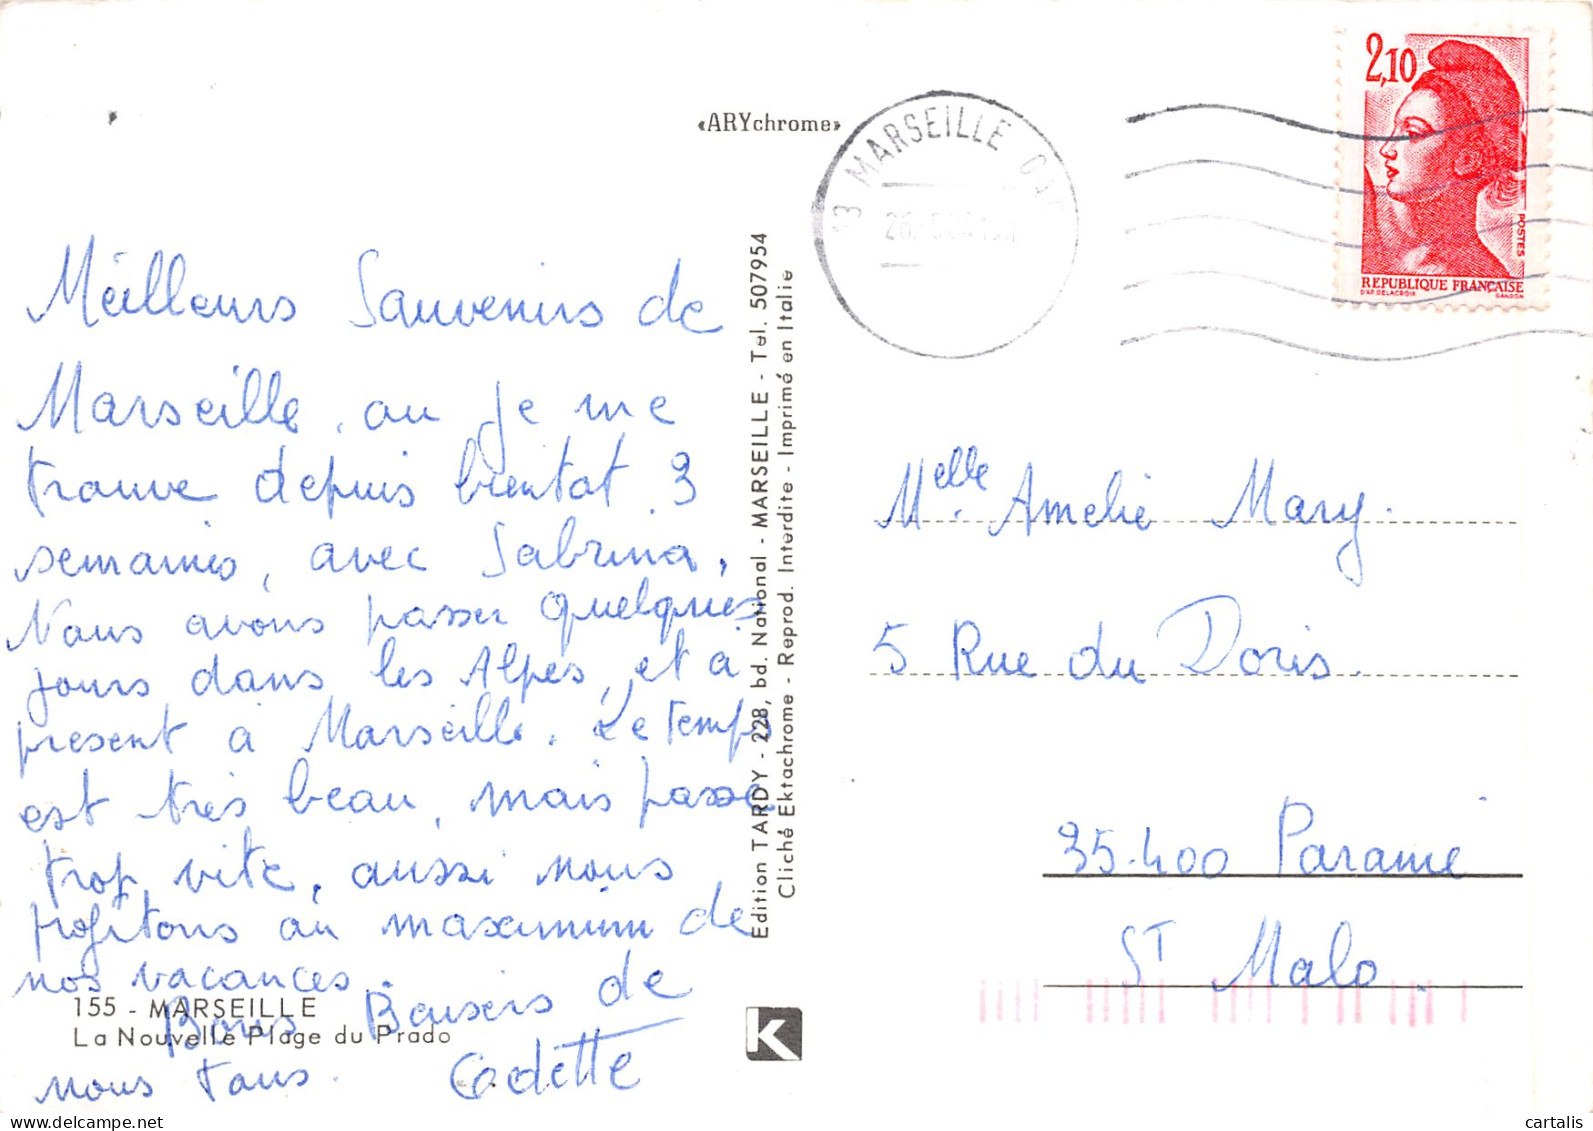 «ARYchrome»
13 MARSEILLE
2,10
POSTES
REPUBLIQUE FRANÇAISE
D'AP. DELACROIX GANDON
Meilleurs Souvenirs de
Marseille, ou je me
trouve depuis bientot 3
semaines, avec Sabrina,
Nous avons passer quelques
jours dans les Alpes, et à
present à Marseille. Le temps
est très beau, mais passe
trop vite, aussi nous
profitons au maximum de
nos vacances.
Bons Baisers de
nous tous. Odette
155 - MARSEILLE
La Nouvelle Plage du Prado
Edition TARDY - 228, bd. National - MARSEILLE - Tel. 507954
Cliché Ektachrome - Reprod. Interdite - Imprimé en Italie
K
Melle. Amelie Mary.
5 Rue du Doris.
35.400 Paramé
ST Malo.
cartalis
www.delcampe.net